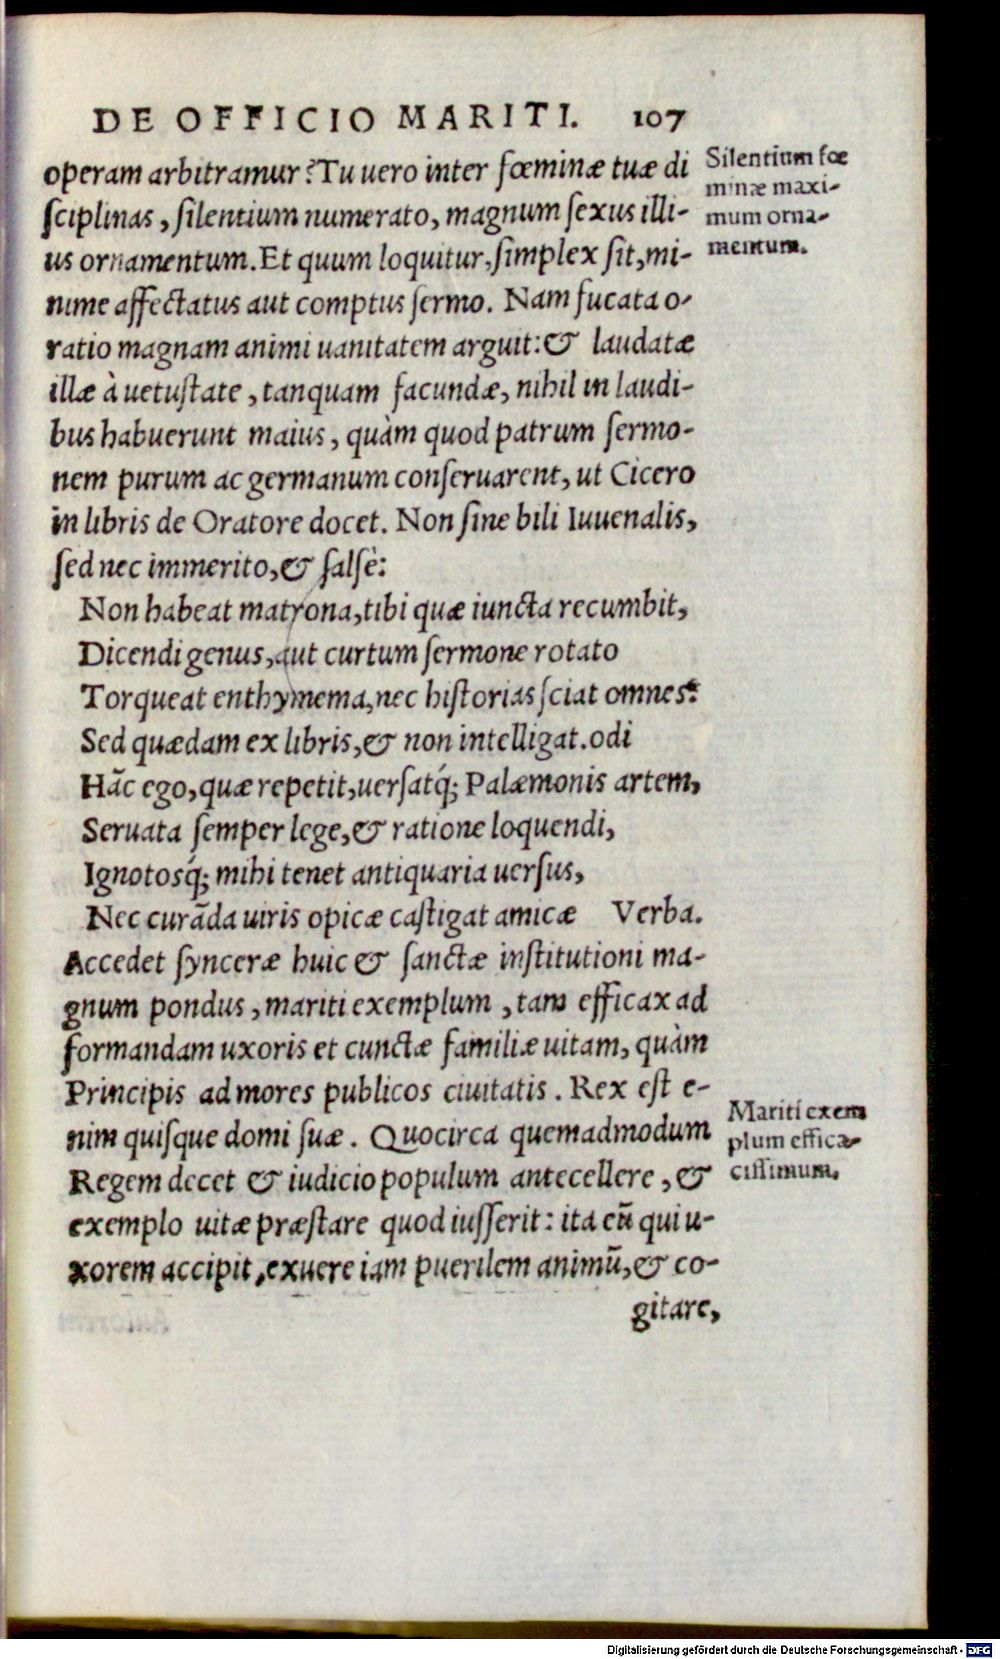 DE OFFICIO MARITI. 107
operam arbitramur? Tu uero inter fœminæ tuæ di
ſciplinas, ſilentium numerato, magnum ſexus illi-
us ornamentum. Et quum loquitur, ſimplex ſit, mi-
nime affectatus aut comptus ſermo. Nam fucata o-
ratio magnam animi uanitatem arguit: & laudatæ
illæ à uetuſtate, tanquam facundæ, nihil in laudi-
bus habuerunt maius, quàm quod patrum ſermo-
nem purum ac germanum conſeruarent, ut Cicero
in libris de Oratore docet. Non ſine bili Iuuenalis,
ſed nec immerito, & ſalſè:
Non habeat matrona, tibi quæ iuncta recumbit,
Dicendi genus, aut curtum ſermone rotato
Torqueat enthymema, nec hiſtorias ſciat omnes:
Sed quædam ex libris, & non intelligat. odi
Hãc ego, quæ repetit, uerſatq́; Palæmonis artem,
Seruata ſemper lege, & ratione loquendi,
Ignotosq́; mihi tenet antiquaria uerſus,
Nec curãda uiris opicæ caſtigat amicæ Verba.
Accedet ſynceræ huic & ſanctæ inſtitutioni ma-
gnum pondus, mariti exemplum, tam efficax ad
formandam uxoris et cunctæ familiæ uitam, quàm
Principis ad mores publicos ciuitatis. Rex eſt e-
nim quiſque domi ſuæ. Quocirca quemadmodum
Regem decet & iudicio populum antecellere, &
exemplo uitæ præſtare quod iuſſerit: ita eũ qui u-
xorem accipit, exuere iam puerilem animũ, & co-
gitare,
Silentium fœ
minæ maxi-
mum orna-
mentum.
Mariti exem
plum effica-
ciſſimum.
Digitalisierung gefördert durch die Deutsche Forschungsgemeinschaft - DFG